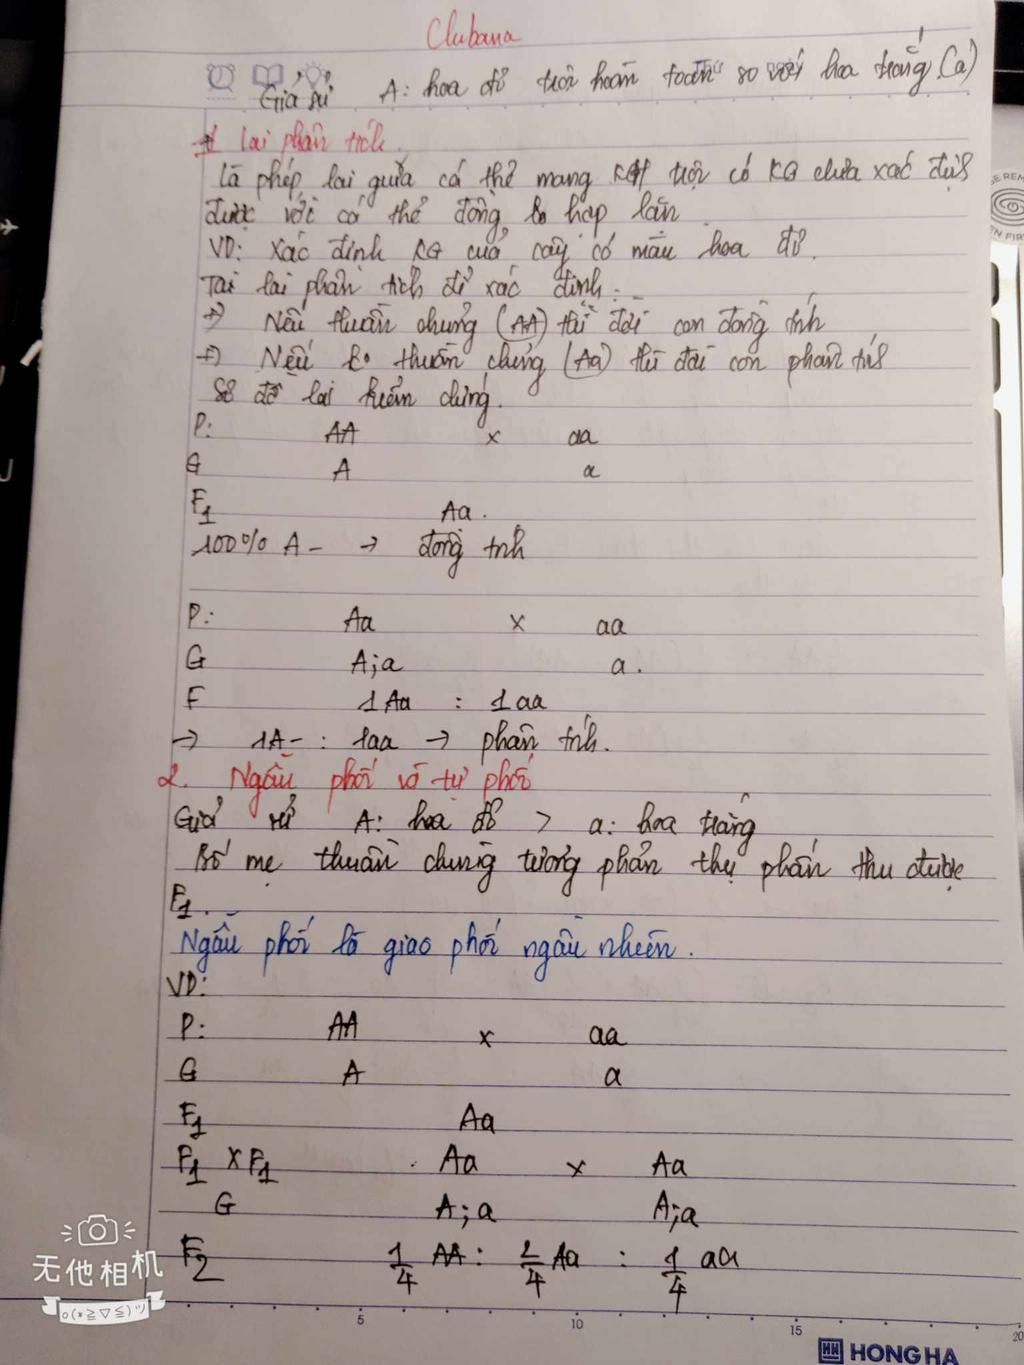 Clubana
Giả sử A: hoa đỏ trội hoàn toàn so với hoa trắng (a)
1 Lai phân tích.
Là phép lai giữa cá thể mang KH trội có KG chưa xác định
được với cá thể đồng hợp lặn
VD: Xác định KG của cây có màu hoa đỏ.
Ta lai phân tích để xác định:
+) Nếu thuần chủng (AA) thì đời con đồng tính
+) Nếu ko thuần chủng (Aa) thì đời con phân tính
Sơ đồ lai kiểm chứng.
P: AA x aa
G A a
F1 Aa.
100% A- → đồng tính
P: Aa x aa
G A;a a.
F 1Aa : 1aa
→ 1A- : 1aa → phân tính.
2. Ngẫu phối và tự phối
Giả sử A: hoa đỏ > a: hoa trắng
Bố mẹ thuần chủng tương phản thụ phấn thu được
F1.
Ngẫu phối là giao phối ngẫu nhiên.
VD:
P: AA x aa
G A a
F1 Aa
F1 x F1 Aa x Aa
G A;a A;a
F2 1/4 AA : 2/4 Aa : 1/4 aa
无他相机
o(*≧▽≦)ツ
5 10 15 20
HONG HA